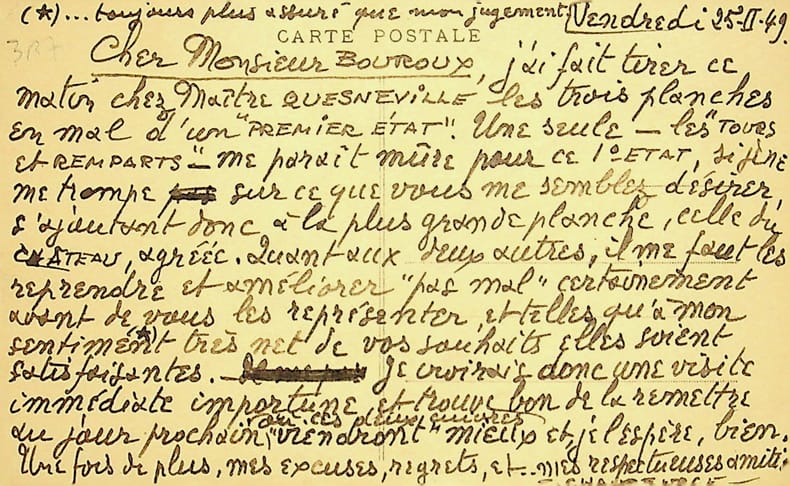 (*)... toujours plus assuré que mon jugement. Vendredi 25-II-49.
CARTE POSTALE
3R7
Cher Monsieur BOUROUX, j'ai fait tirer ce
matin chez Maître QUESNEVILLE les trois planches
en mal d'un "PREMIER ÉTAT". Une seule — les "TOURS
et REMPARTS" — me paraît mûre pour ce 1° ETAT, si je ne
me trompe pas sur ce que vous me semblez désirer,
s'ajoutant donc à la plus grande planche, celle du
CHÂTEAU, agréée. Quant aux deux autres, il me faut les
reprendre et améliorer "pas mal" certainement
avant de vous les représenter, et telles qu'à mon
sentiment(*) très net de vos souhaits elles soient
satisfaisantes. Je croirais donc une visite
immédiate importune et trouve bon de la remettre
au jour prochain, où ces deux œuvres
"viendront" mieux et, je l'espère, bien.
Une fois de plus, mes excuses, regrets, et... mes respectueuses amitiés